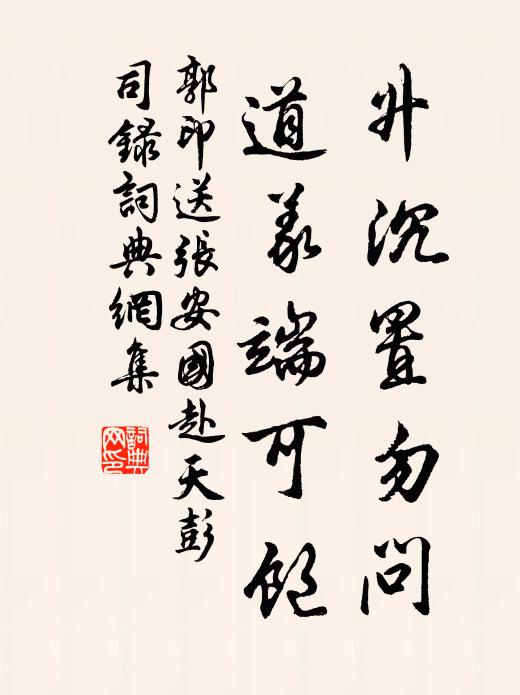 升沉置勿問
道義端可飽
郭印送張安國赴天彭
司錄詞典網集
詞典网印